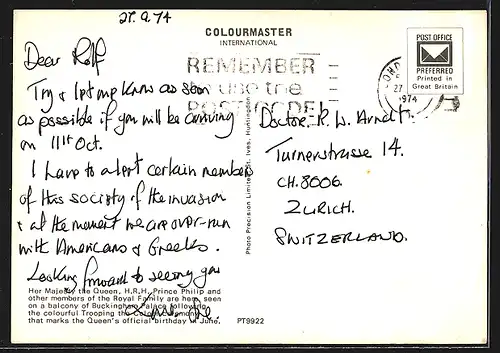 27.9.74
Dear Rolf
Try & let me know as soon
as possible if you will be arriving
on 11th Oct.
I have to alert certain members
of this society of the invasion
& at the moment we are over-run
with Americans & Greeks.
Looking forward to seeing you
Her Majesty the Queen, H.R.H. Prince Philip and
other members of the Royal Family are here seen
on a balcony of Buckingham Palace following
the colourful Trooping the
that marks the Queen's official birthday in June.
PT9922
COLOURMASTER
INTERNATIONAL
Photo Precision Limited, St. Ives, Huntingdon
REMEMBER
use the
POSTCODE
27
1974
POST OFFICE
PREFERRED
Printed in
Great Britain
Doctor. R. W. Arndt.
Turnerstrasse 14.
CH.8006.
ZURICH.
SWITZERLAND.